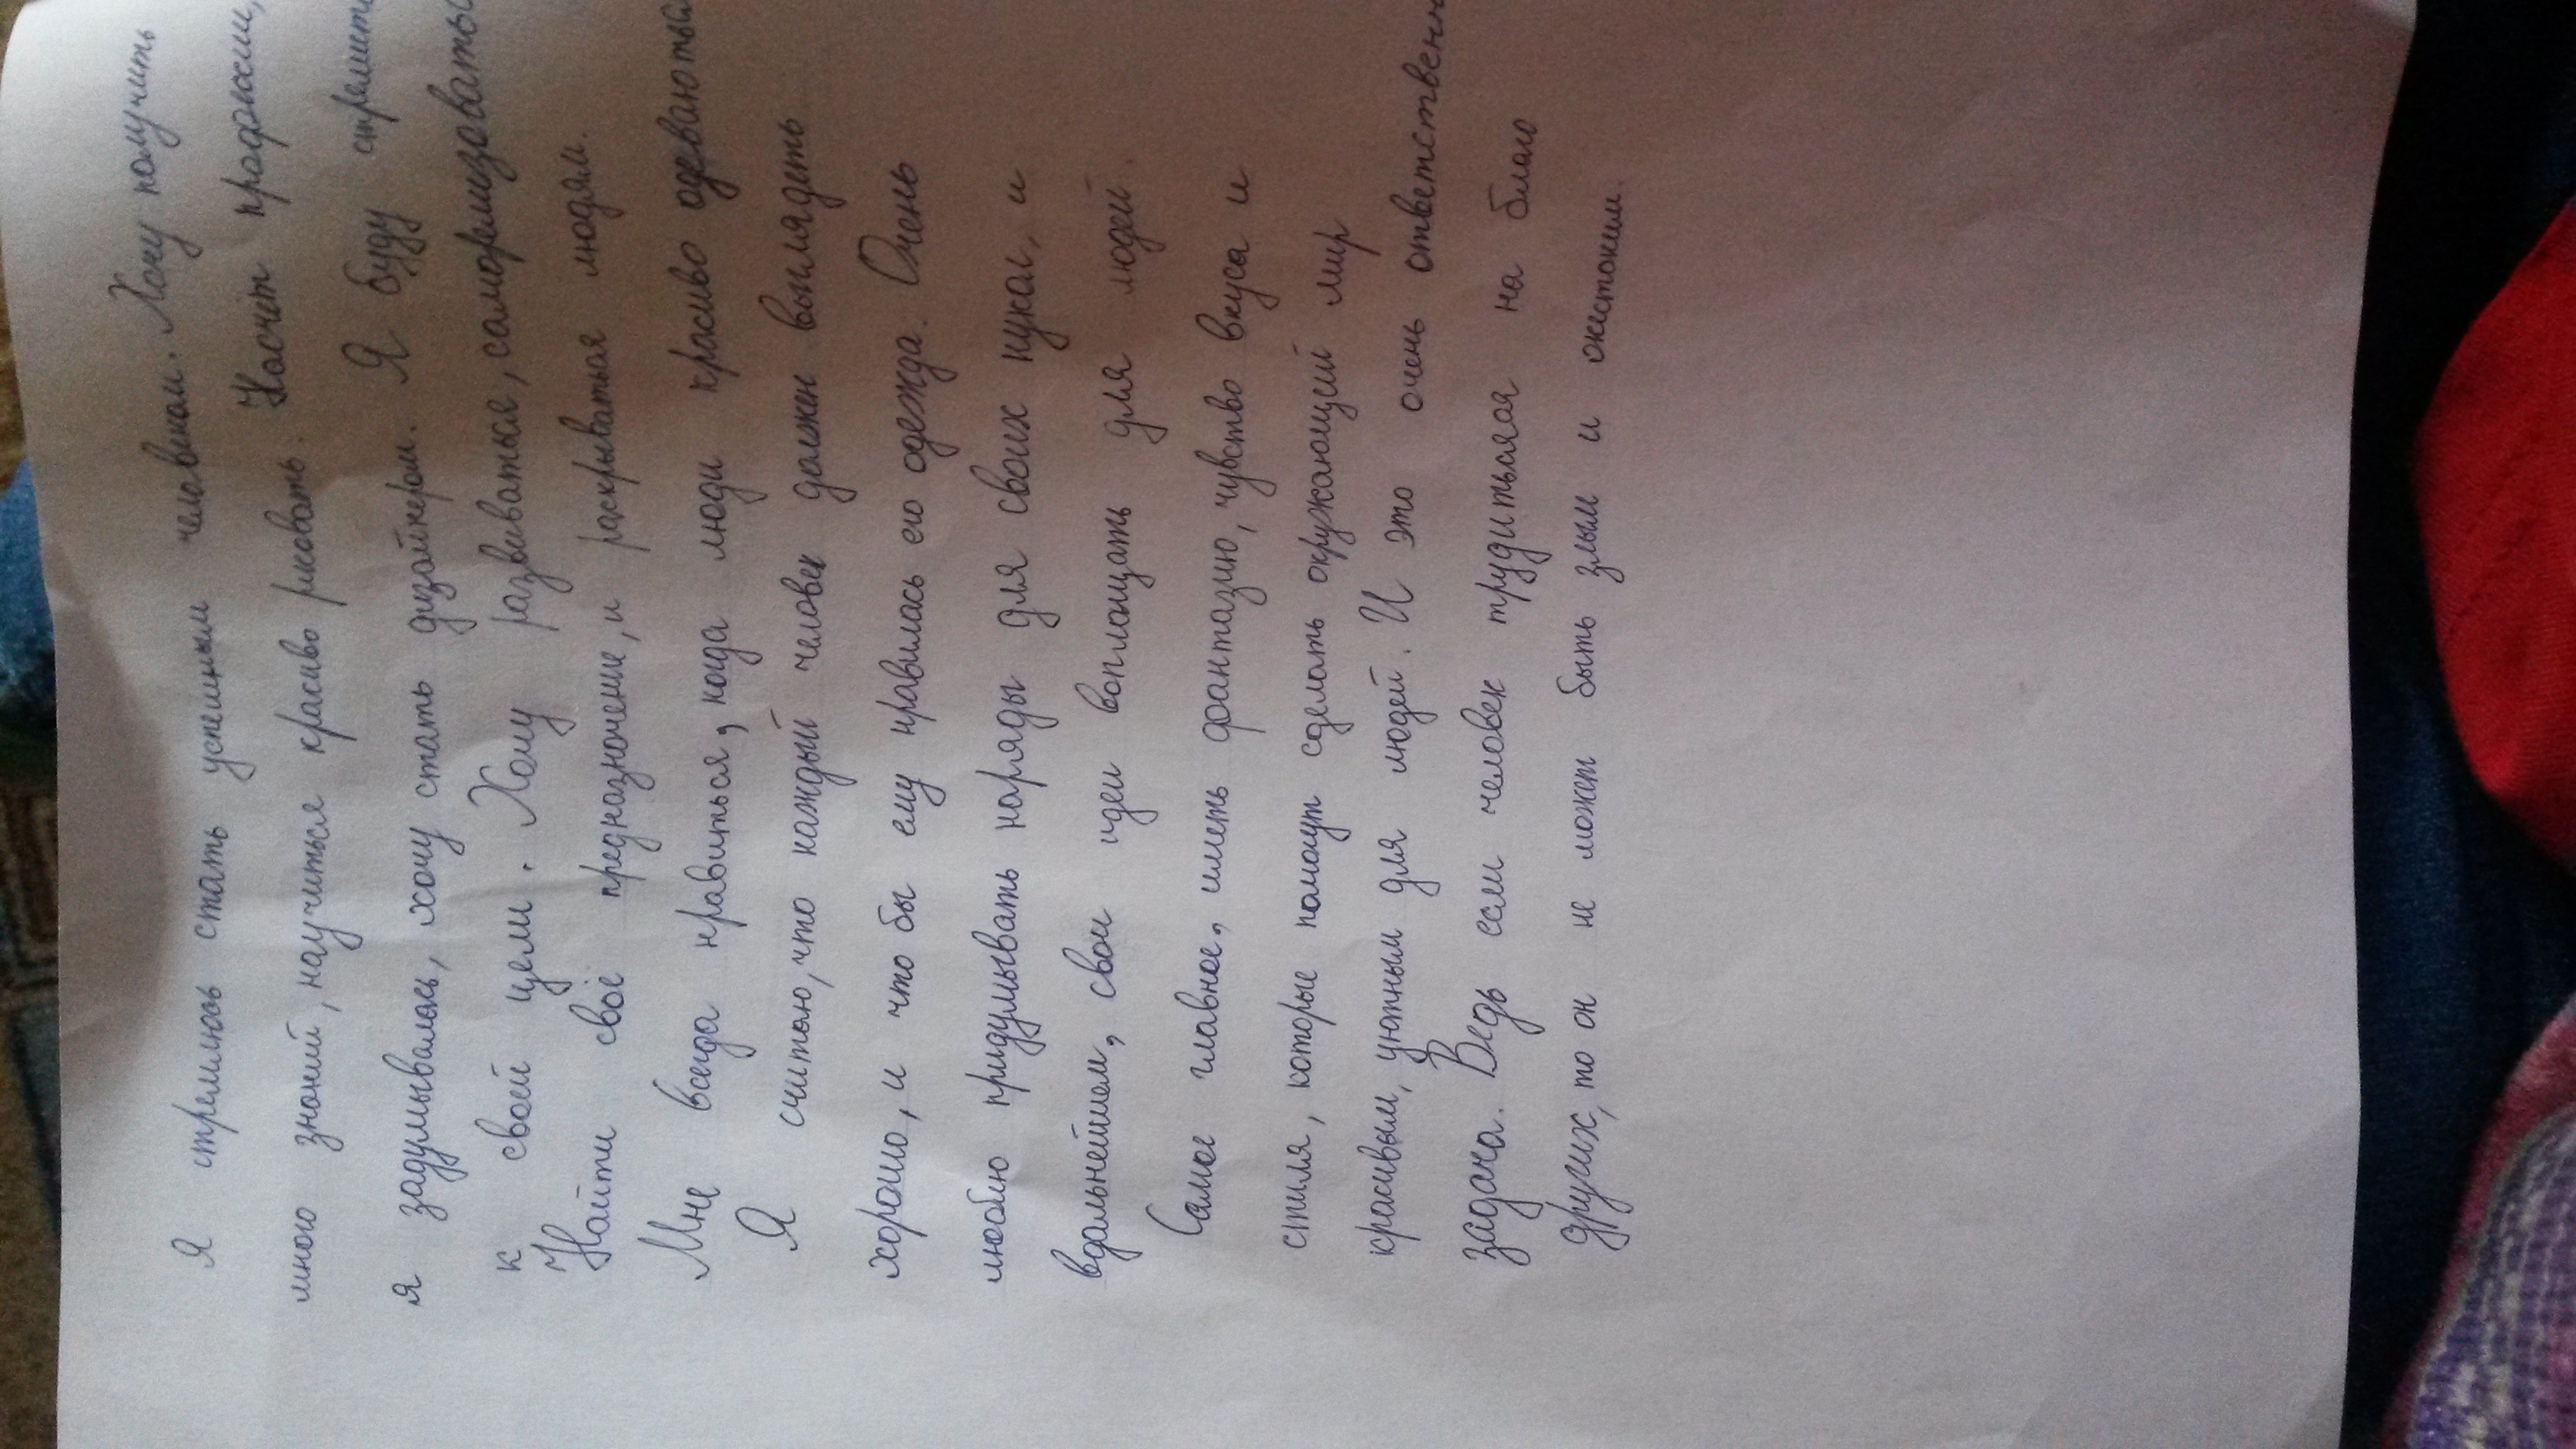 Я стремлюсь стать успешным человеком. Хочу получить
много знаний, научиться красиво рисовать. Насчёт профессии,
я задумывалась, хочу стать дизайнером. Я буду стремить
к своей цели. Хочу развиваться, самореализоваться
Найти своё предназначение, и раскрываться людям.
Мне всегда нравиться, когда люди красиво одеваються
Я считаю, что каждый человек должен выглядеть
хорошо, и что бы ему нравилась его одежда. Очень
люблю придумывать наряды для своих кукол, и
вдальнейшем, свои идеи воплощать для людей.
Самое главное, иметь фантазию, чувство вкуса и
стиля, которые помогут сделать окружающей мир
красивым, уютным для людей. И это очень ответственн
задача. Ведь если человек трудиться на благо
других, то он не может быть злым и жестоким.